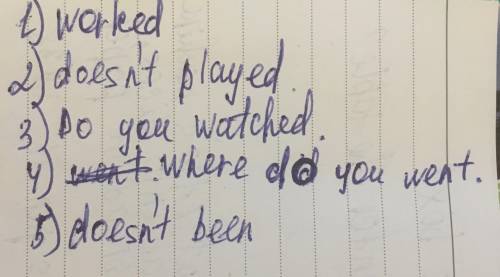 1) worked
2) doesn't played.
3) Do you watched.
4) where do you went.
5) doesn't been